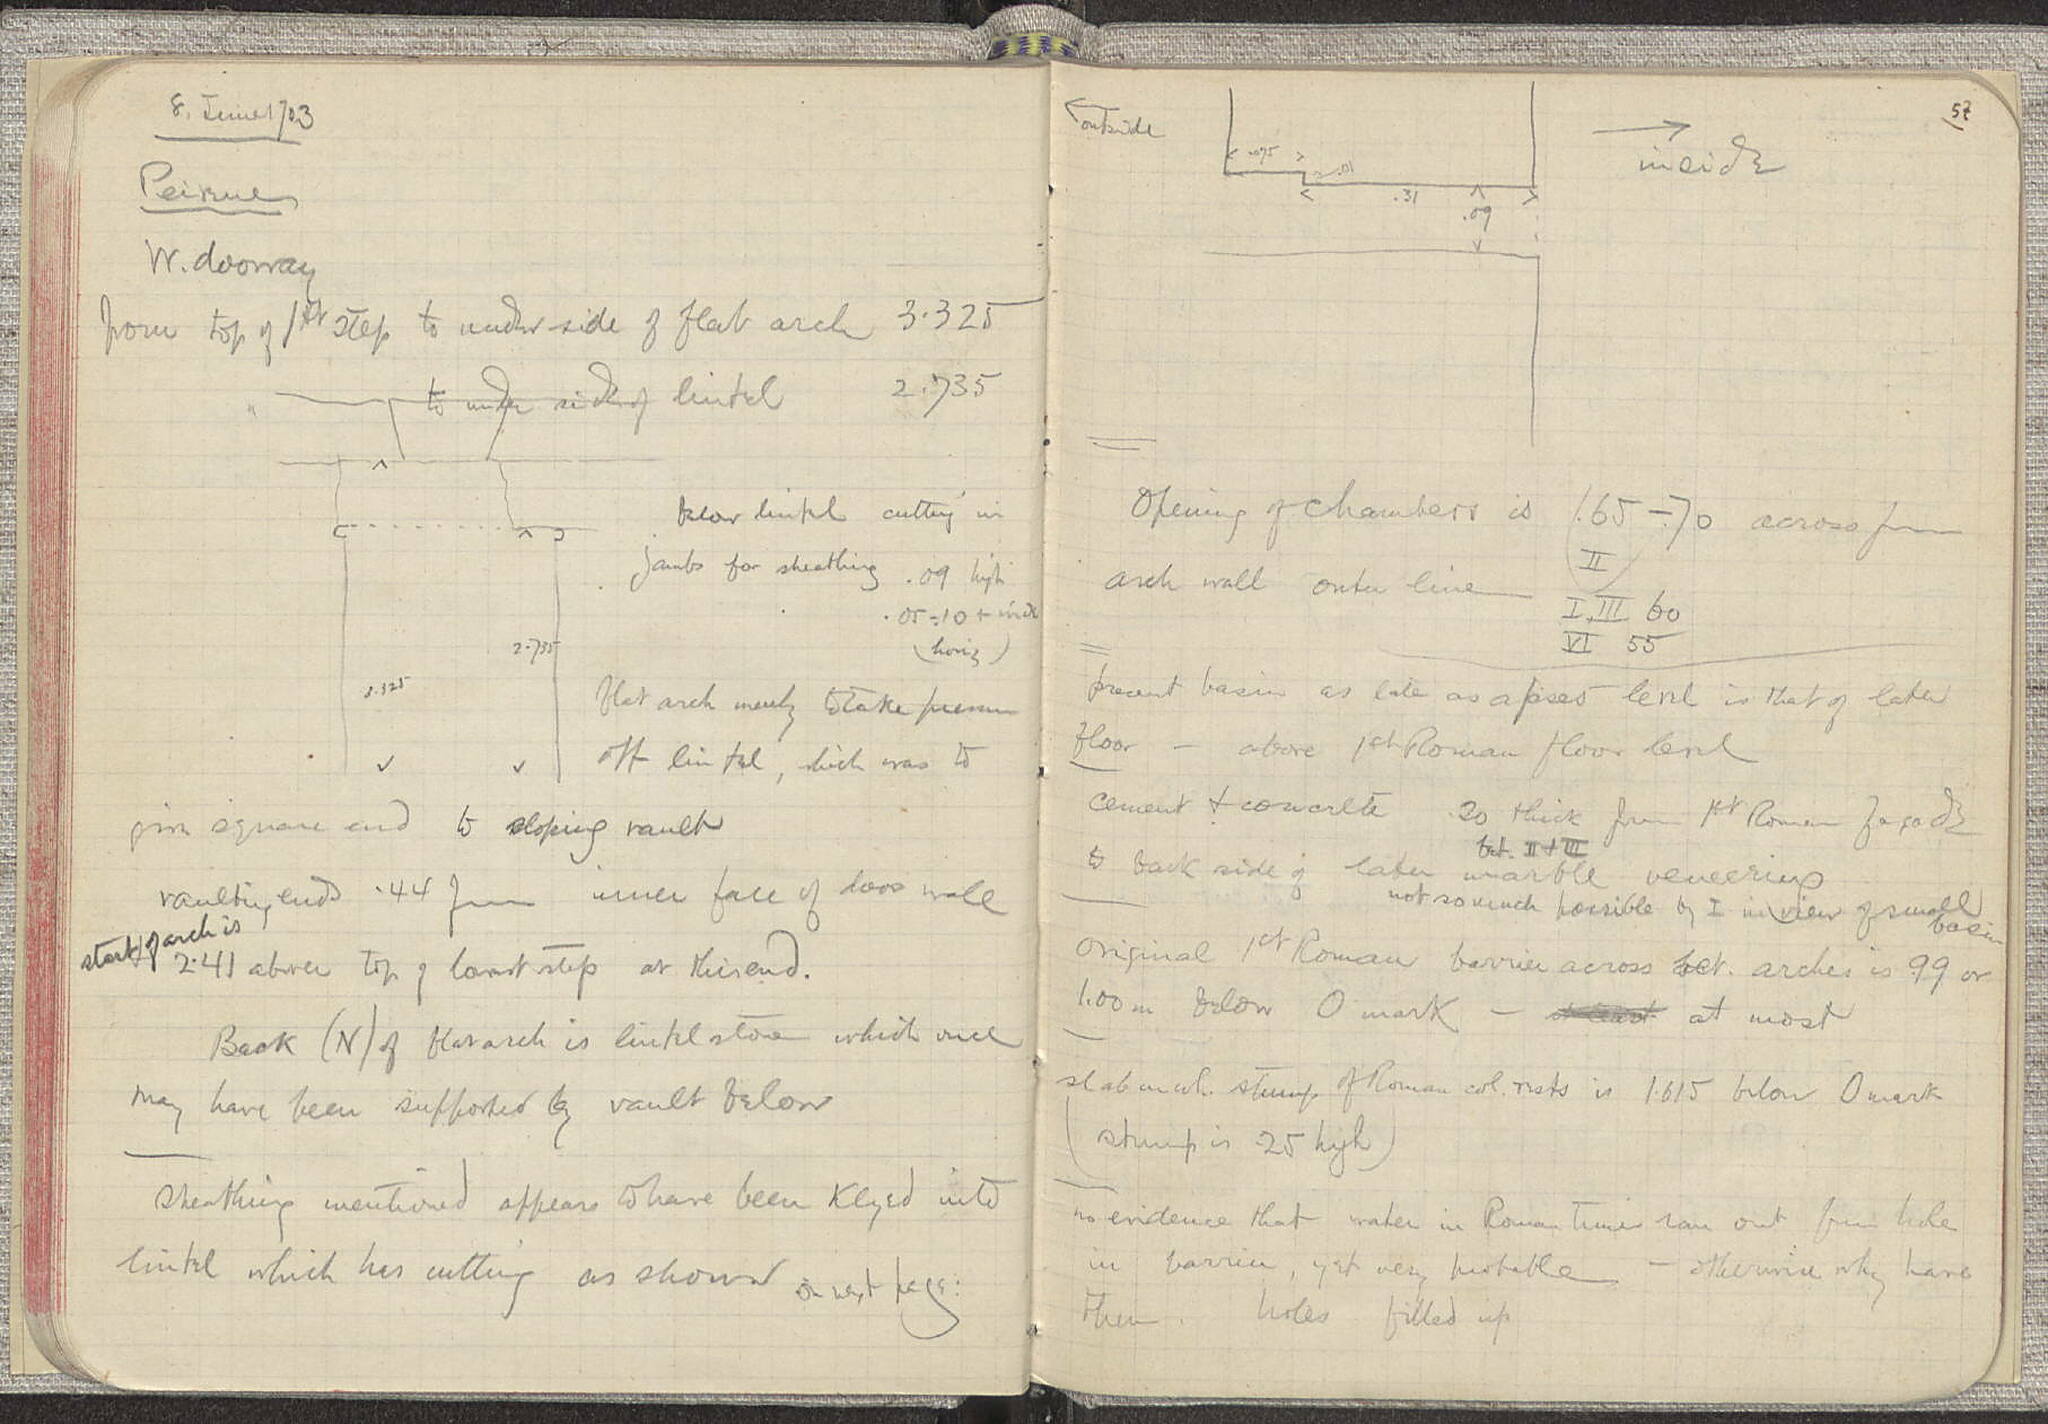 8. June 1903
Peirene
W. doorway
from top of 1st step to under side of flat arch 3.325
" to under side of lintel 2.735
below lintel cutting in
jambs for sheathing .09 high
.05-.10 + wide
(horiz)
2.735
3.325
flat arch merely to take pressure
off lintel, which was to
give square end to sloping vault
vaulting ends .44 from inner face of door wall
start of arch is
2.41 above top of lowest step at this end.
Back (N) of flat arch is lintel stone which once
may have been supported by vault below
sheathing mentioned appears to have been keyed into
lintel which has cutting as shown on next page:
57
outside
inside
.075
.01
.31
.09
Opening of chambers is 1.65-.70 across from
II
arch wall outer line
I, III 60
VI 55
present basin as late as apses level is that of later
floor - above 1st Roman floor level
cement + concrete .20 thick from 1st Roman façade
bet. II + III
to back side of later marble veneering
not so much possible by I in view of small
basin
original 1st Roman barrier across bet. arches is .99 or
1.00 m below O mark - at most
slab on wh. stump of Roman col. rests is 1.615 below O mark
(stump is .25 high)
no evidence that water in Roman times ran out from hole
in barrier, yet very probable - otherwise why have
them. holes filled up